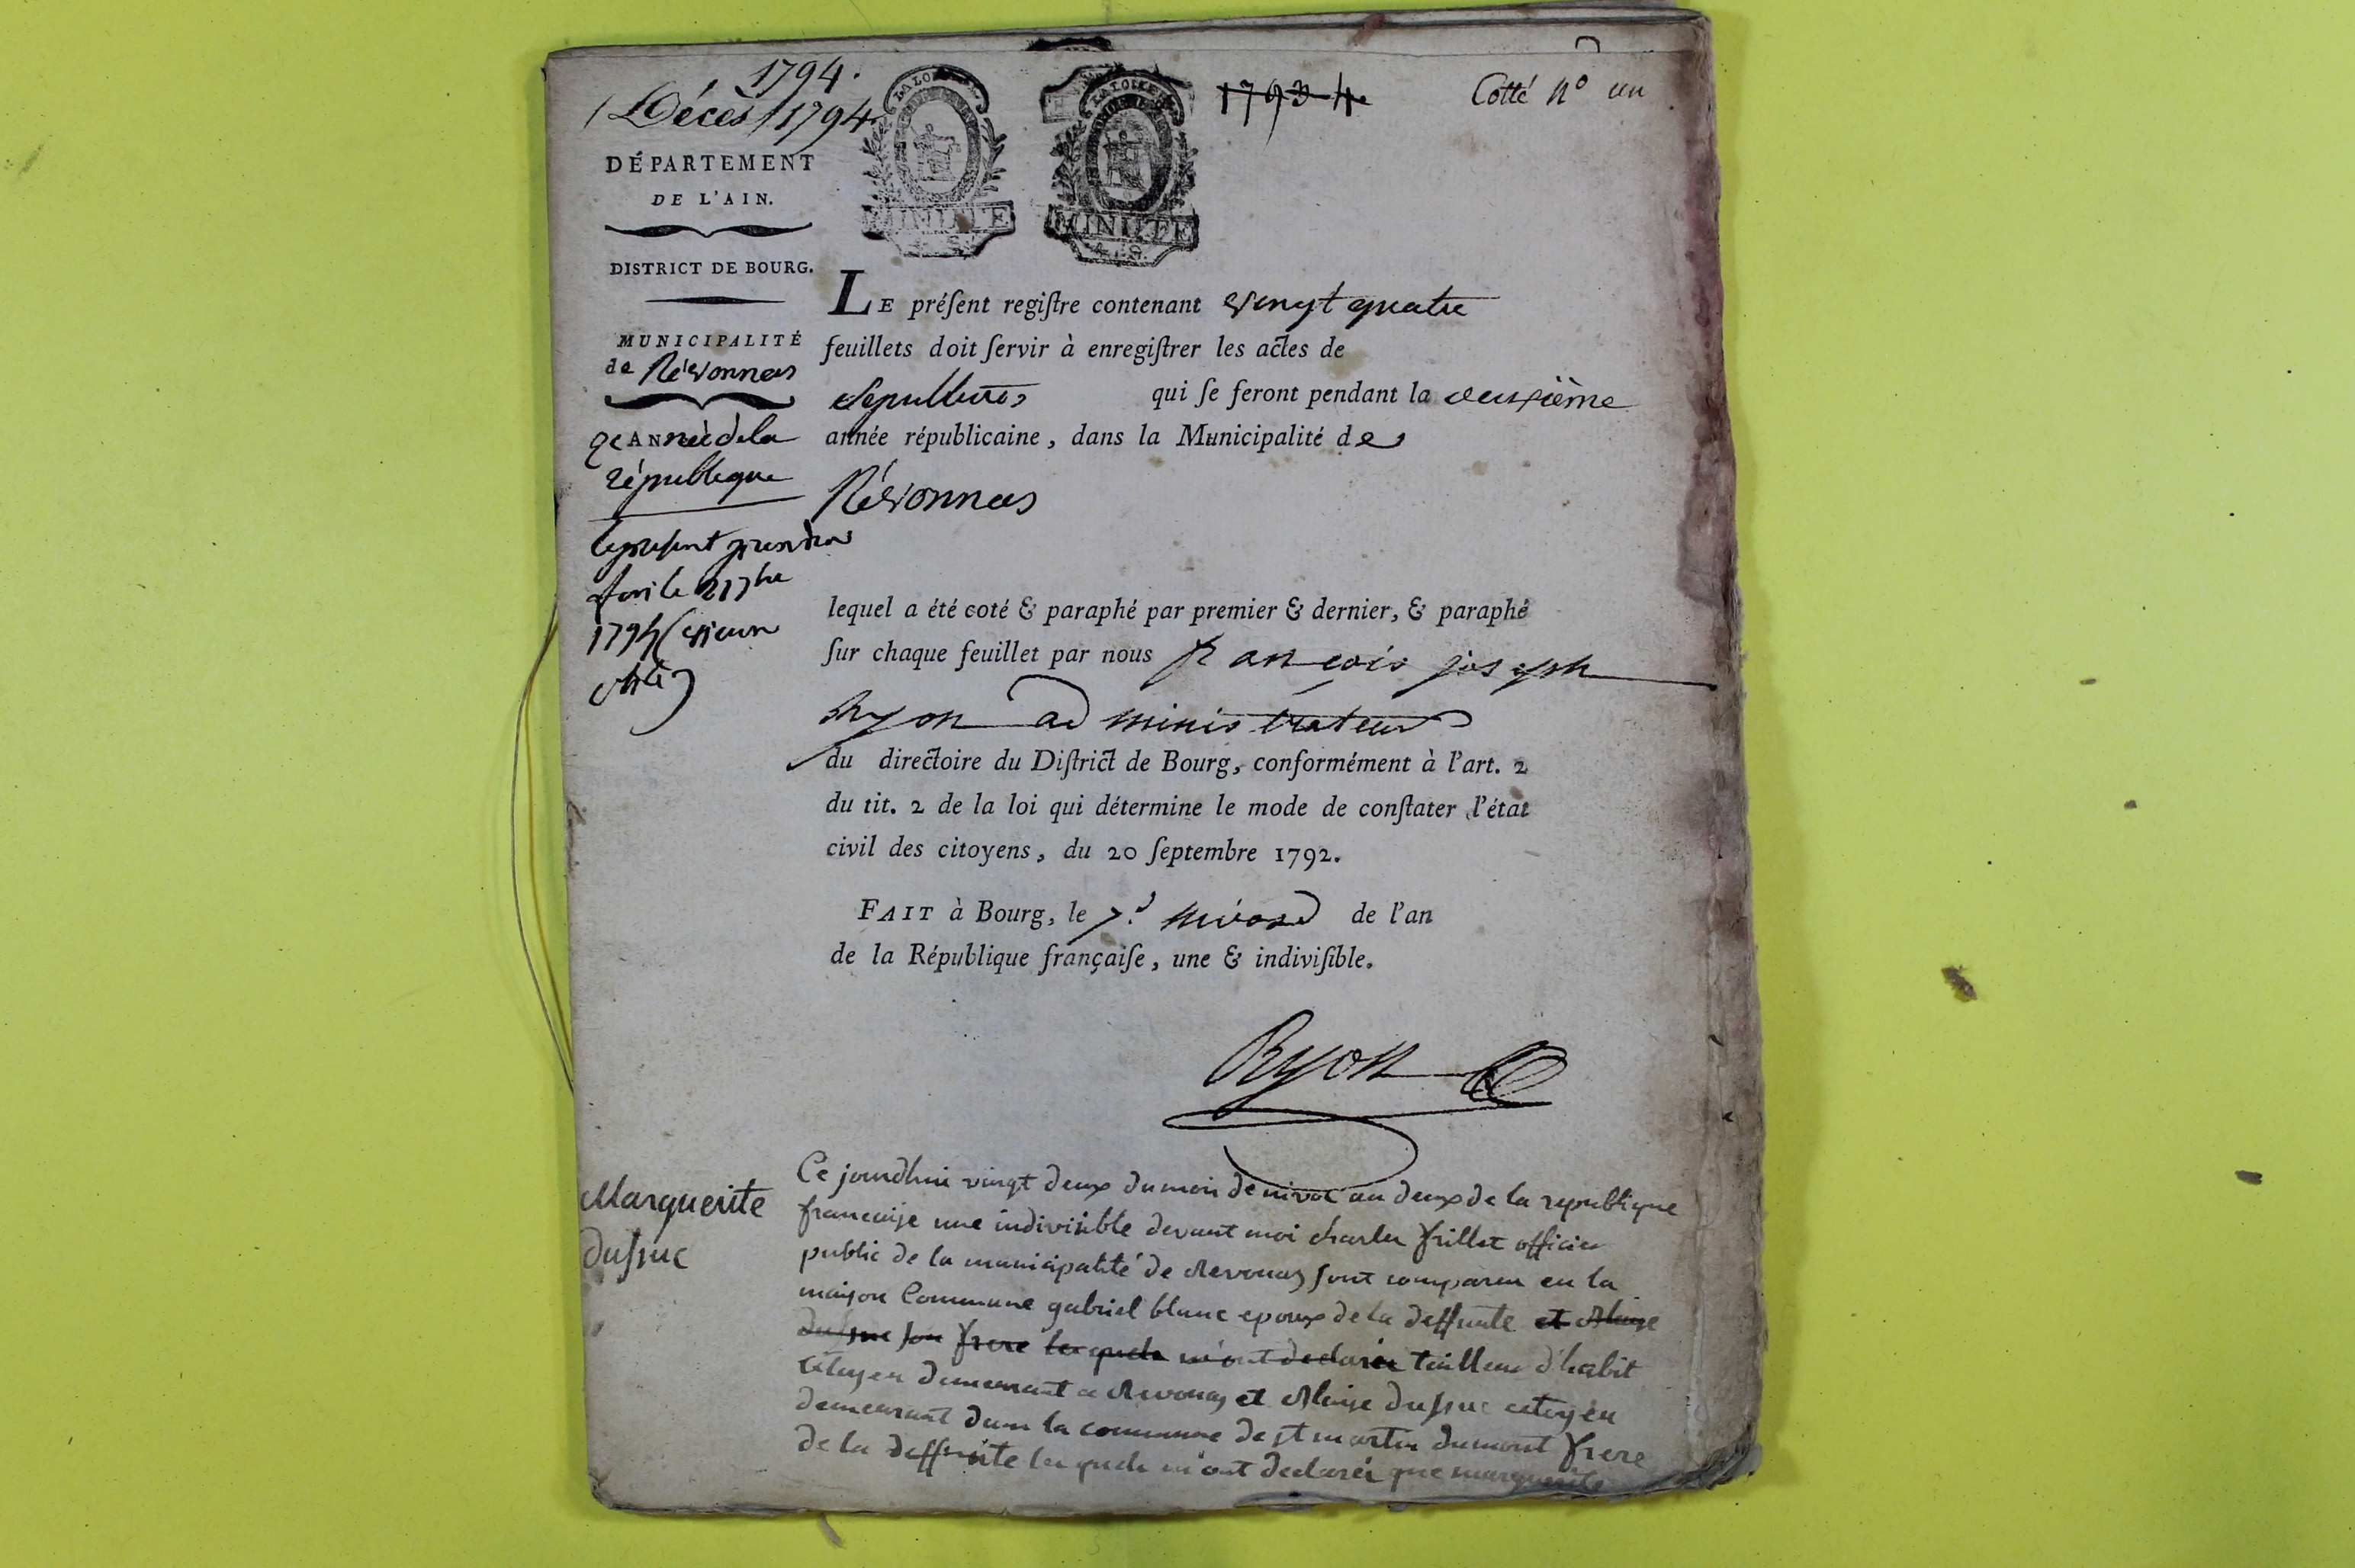 1794.
Décès 1794
1793 4e
Cotté n° un
LA LOI
MINUTE
4. S.
LA LOI ET LE
MINUTE
4. S.
DÉPARTEMENT
DE L'AIN.
DISTRICT DE BOURG.
MUNICIPALITÉ
de Révonnas
2e ANnéé de la
république
le présent
1794
LE préſent regiſtre contenant vingt quatre
feuillets doit ſervir à enregiſtrer les actes de
Sepultures qui ſe feront pendant la deuxième
année républicaine, dans la Municipalité de
Révonnas
lequel a été coté & paraphé par premier & dernier, & paraphé
ſur chaque feuillet par nous francois joseph
Ryon administrateur
du directoire du Diſtrict de Bourg, conformément à l'art. 2
du tit. 2 de la loi qui détermine le mode de conſtater l'état
civil des citoyens, du 20 ſeptembre 1792.
FAIT à Bourg, le 7.d nivose de l'an
de la République françaiſe, une & indiviſible.
Ryon
Marguerite
dusuc
Ce jourdhui vingt deux du mois de nivos an deux de la republique
francaise une indivisible devant moi charles frillet officier
public de la municipalité de Revonas sont comparus en la
maison Commune gabriel blanc epoux de la deffunte et Blaise
dusuc son frere lesquels m'ont declarés tailleur d'habit
citoyen demeurant a Revonas et Blaise dusuc citoyen
demeurant dans la commune de st martin dumont frere
de la deffunte lesquels m'ont declarés que marguerite